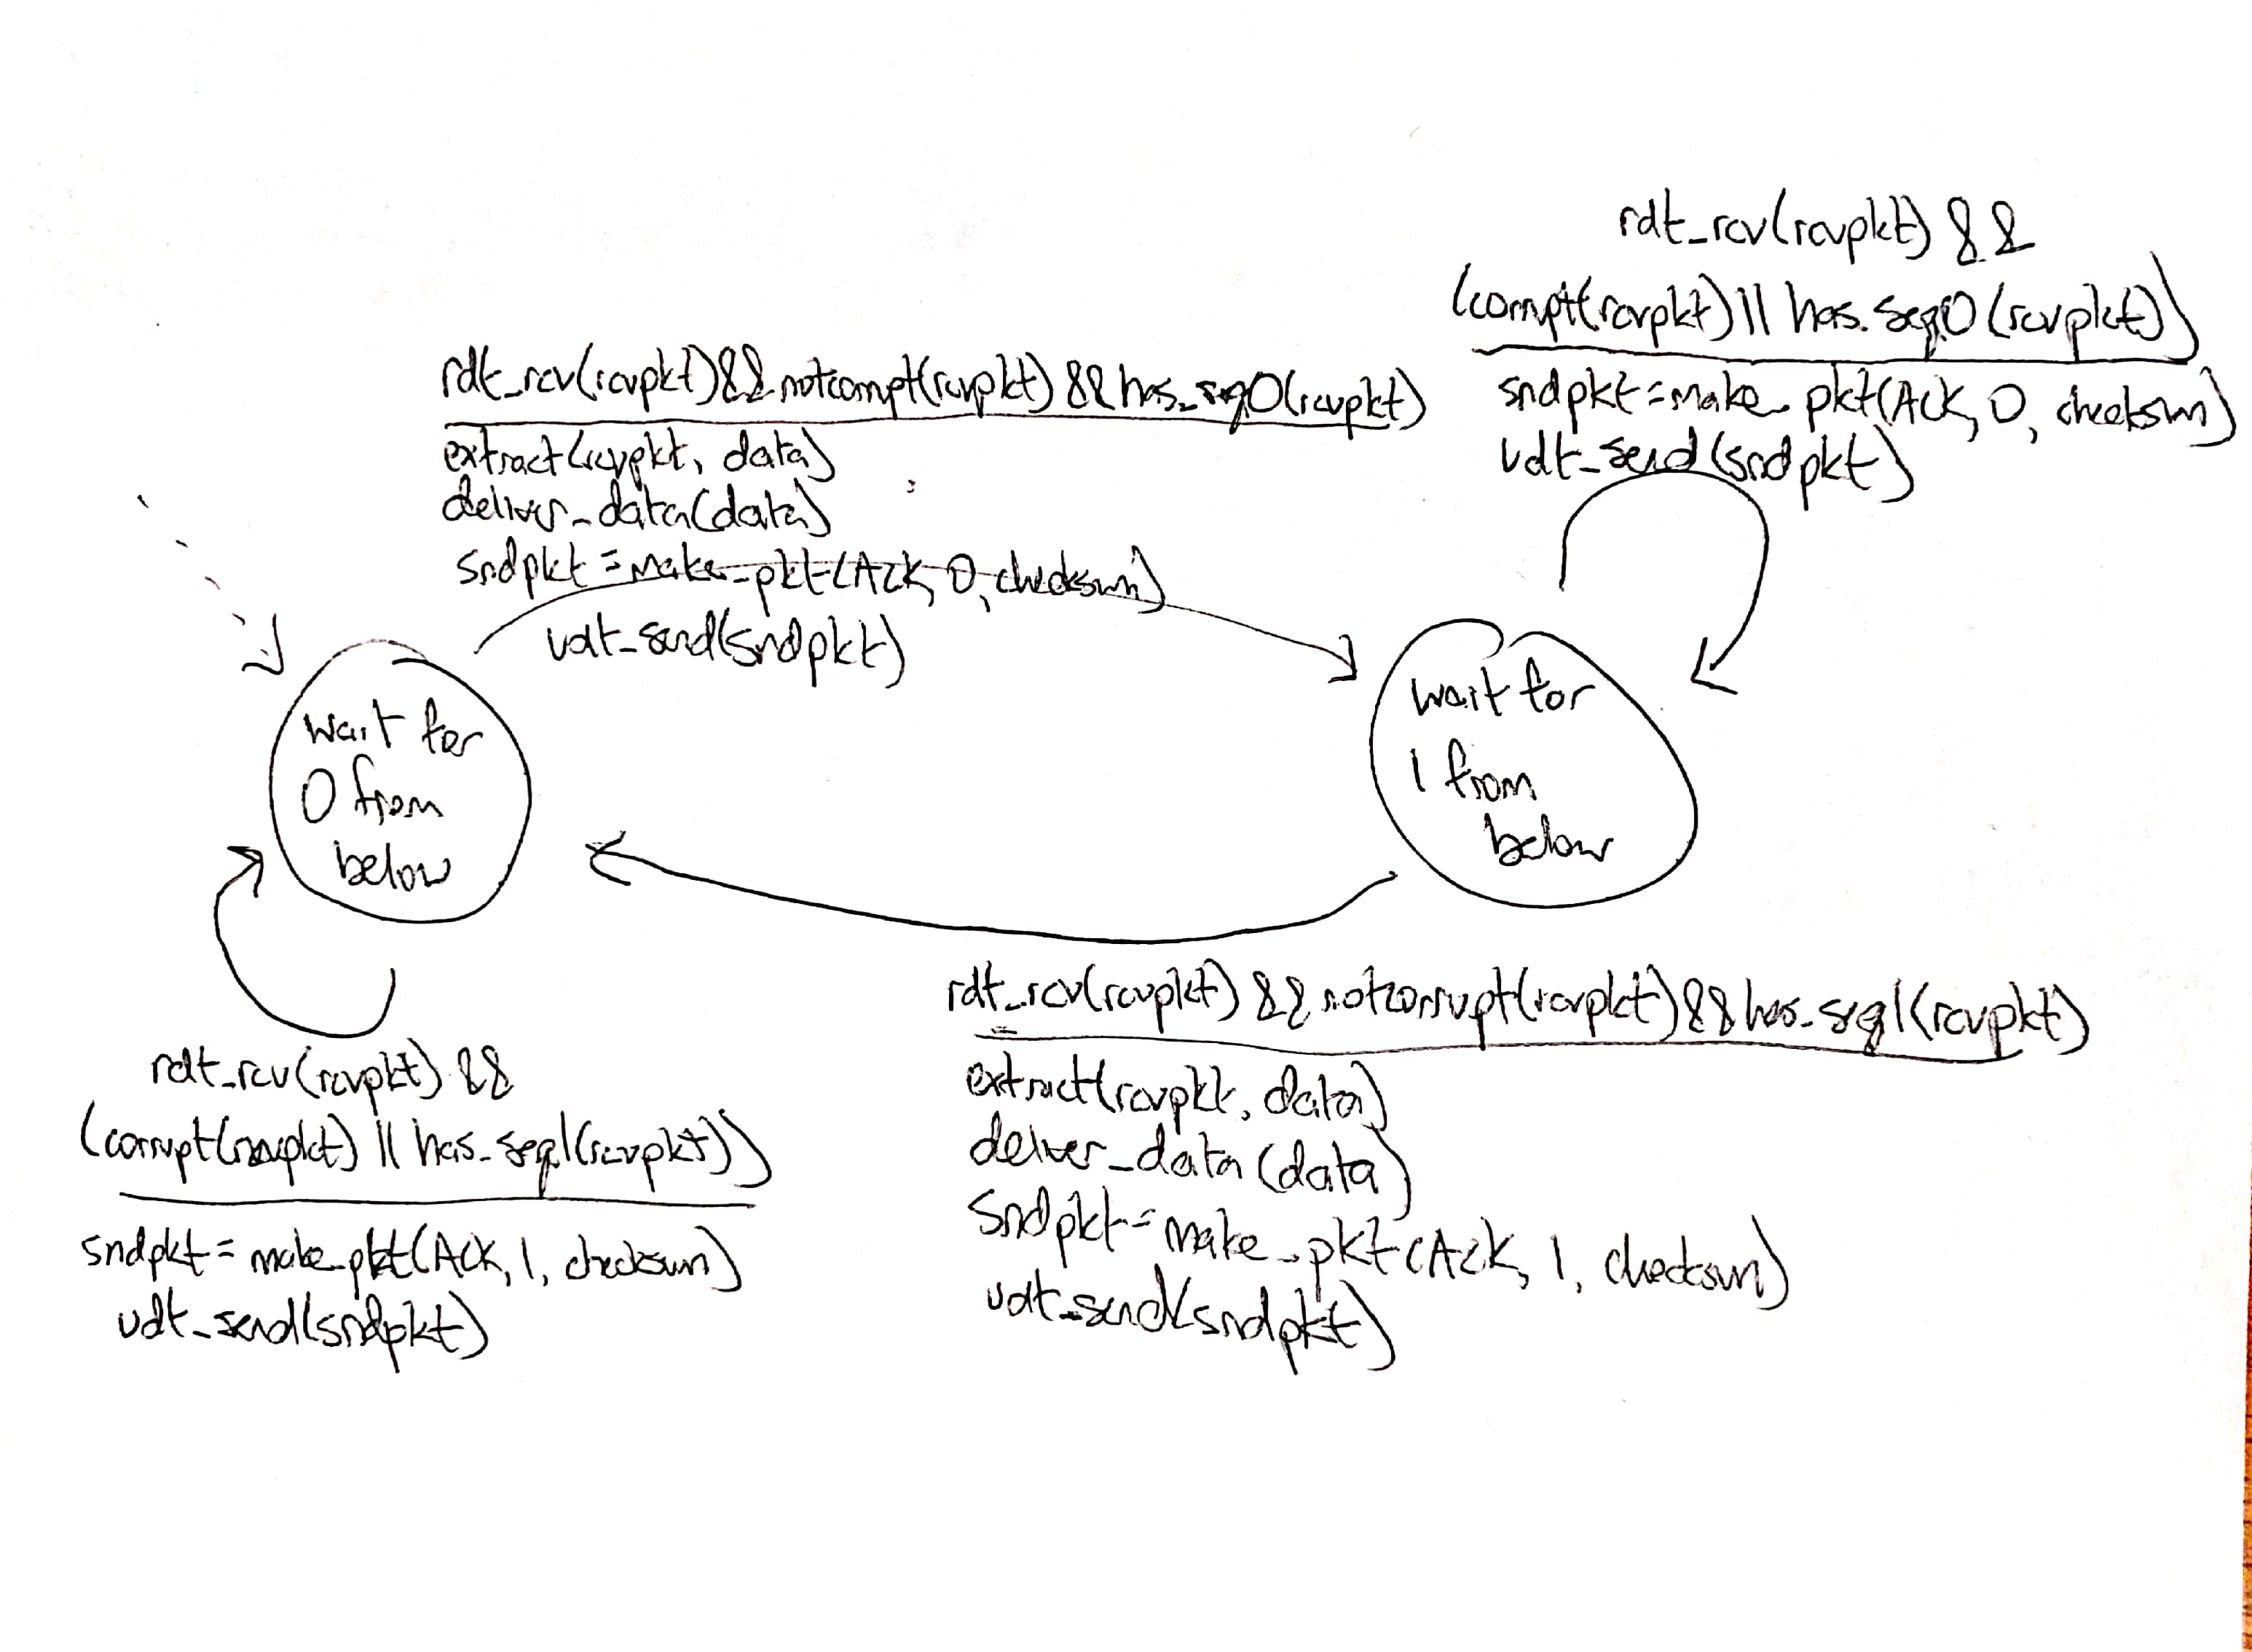 rdt_rcv(rcvpkt) &&
(corrupt(rcvpkt) || has_seq0(rcvpkt))
sndpkt=make_pkt(ACK, 0, checksum)
udt_send(sndpkt)
rdt_rcv(rcvpkt)&&notcorrupt(rcvpkt) && has_seq0(rcvpkt)
extract(rcvpkt, data)
deliver_data(data)
sndpkt=make_pkt(ACK, 0, checksum)
udt_send(sndpkt)
wait for
0 from
below
wait for
1 from
below
rdt_rcv(rcvpkt) &&
(corrupt(rcvpkt) || has_seq1(rcvpkt))
sndpkt = make_pkt(ACK, 1, checksum)
udt_send(sndpkt)
rdt_rcv(rcvpkt) && notcorrupt(rcvpkt) && has_seq1(rcvpkt)
extract(rcvpkt, data)
deliver_data(data)
sndpkt=make_pkt(ACK, 1, checksum)
udt_send(sndpkt)